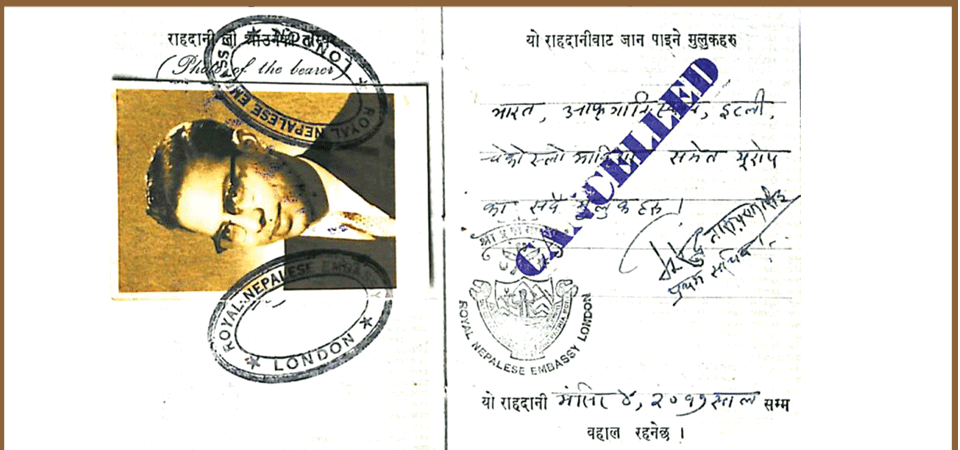 राहदानी
(Photo of the bearer)
ROYAL NEPALESE EMBASSY
LONDON
ROYAL NEPALESE EMBASSY
LONDON
यो राहदानीवाट जान पाइने मुलुकहरु
भारत, इटली,
समेत यूरोप
का सवै मुलुकहरु ।
CANCELLED
प्रथम सचिव ।
ROYAL NEPALESE EMBASSY LONDON
यो राहदानी मंसिर ४, २०१७ साल सम्म
वहाल रहनेछ ।